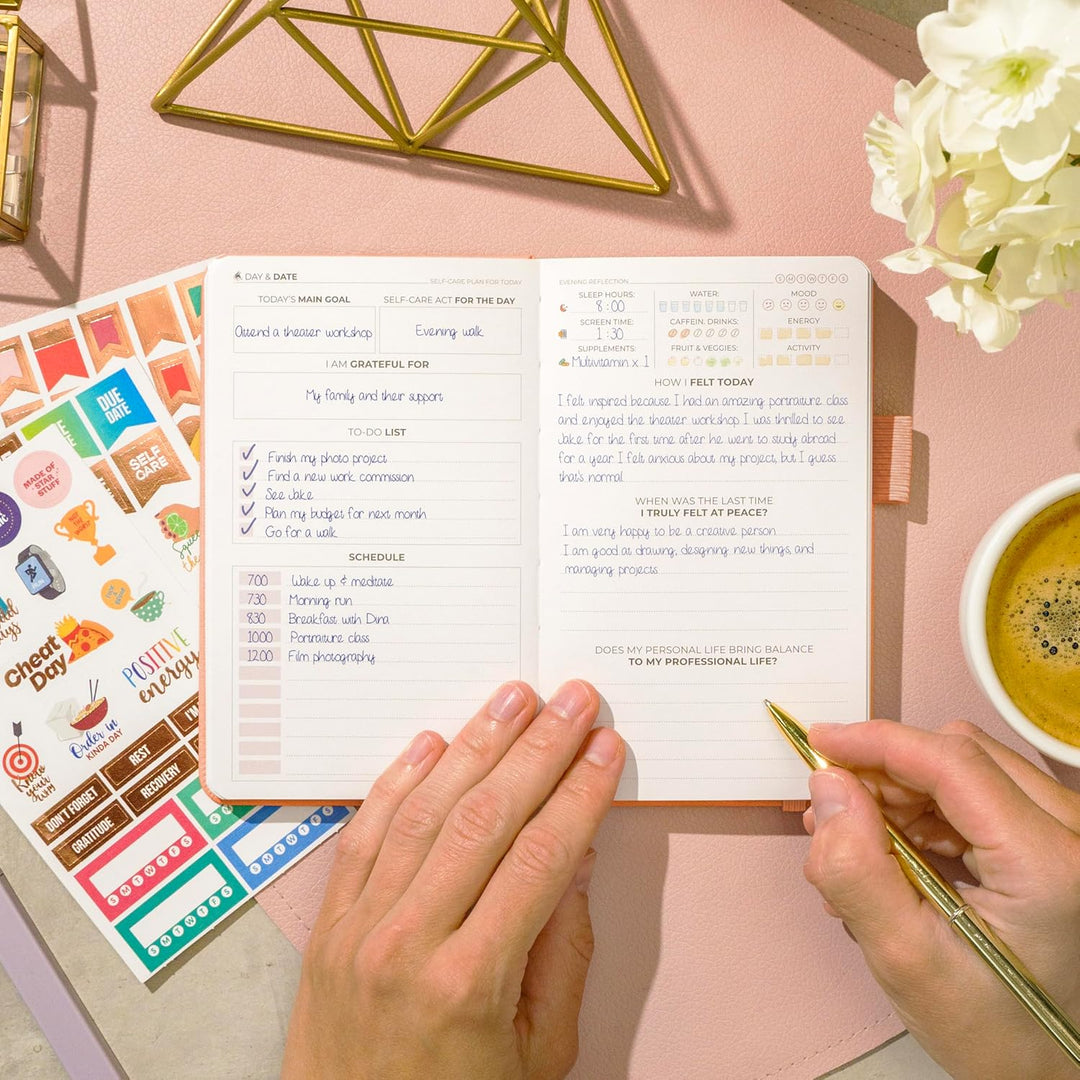 DAY & DATE
SELF-CARE PLAN FOR TODAY
TODAY'S MAIN GOAL
SELF-CARE ACT FOR THE DAY
Attend a theater workshop
Evening walk
I AM GRATEFUL FOR
My family and their support
TO-DO LIST
Finish my photo project
Find a new work commission
See Jake
Plan my budget for next month
Go for a walk
SCHEDULE
7:00 Wake up & meditate
7:30 Morning run
8:30 Breakfast with Dina
10:00 Portraiture class
12:00 Film photography
EVENING REFLECTION
S M T W T F S
SLEEP HOURS:
8:00
SCREEN TIME:
1:30
SUPPLEMENTS:
Multivitamin x 1
WATER:
CAFFEIN. DRINKS:
FRUIT & VEGGIES:
MOOD
ENERGY
ACTIVITY
HOW I FELT TODAY
I felt inspired because I had an amazing portraiture class
and enjoyed the theater workshop. I was thrilled to see
Jake for the first time after he went to study abroad
for a year. I felt anxious about my project, but I guess
that's normal.
WHEN WAS THE LAST TIME
I TRULY FELT AT PEACE?
I am very happy to be a creative person.
I am good at drawing, designing new things, and
managing projects.
DOES MY PERSONAL LIFE BRING BALANCE
TO MY PROFESSIONAL LIFE?
DUE
DATE
SELF
CARE
MADE OF
STAR
STUFF
NOT THE
WORST
Cheat
Day
POSITIVE
energy
Order in
KINDA DAY
Know
your
Why
I'M
REST
DON'T FORGET
RECOVERY
GRATITUDE
S M T W T F S
S M T W T F S
S M T W T F S